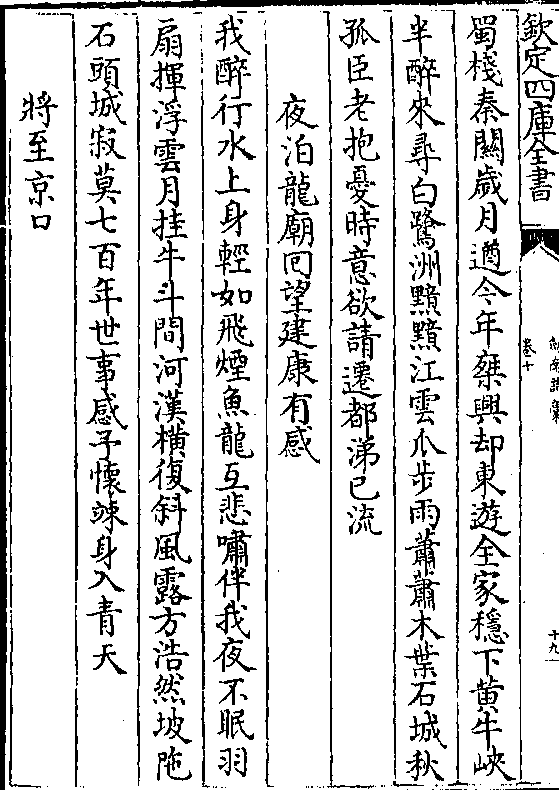 欽定四庫全書
卷十
十九
蜀棧秦關歲月遒今年乗興却東遊全家穩下黄牛峽
半醉來尋白鷺洲黯黯江雲瓜步雨蕭蕭木葉石城秋
孤臣老抱憂時意欲請遷都涕已流
夜泊龍廟囘望建康有感
我醉行水上身輕如飛煙魚龍互悲嘯伴我夜不眠羽
扇揮浮雲月挂牛斗間河漢橫復斜風露方浩然坡陁
石頭城寂莫七百年世事感予懷竦身入青天
將至京口